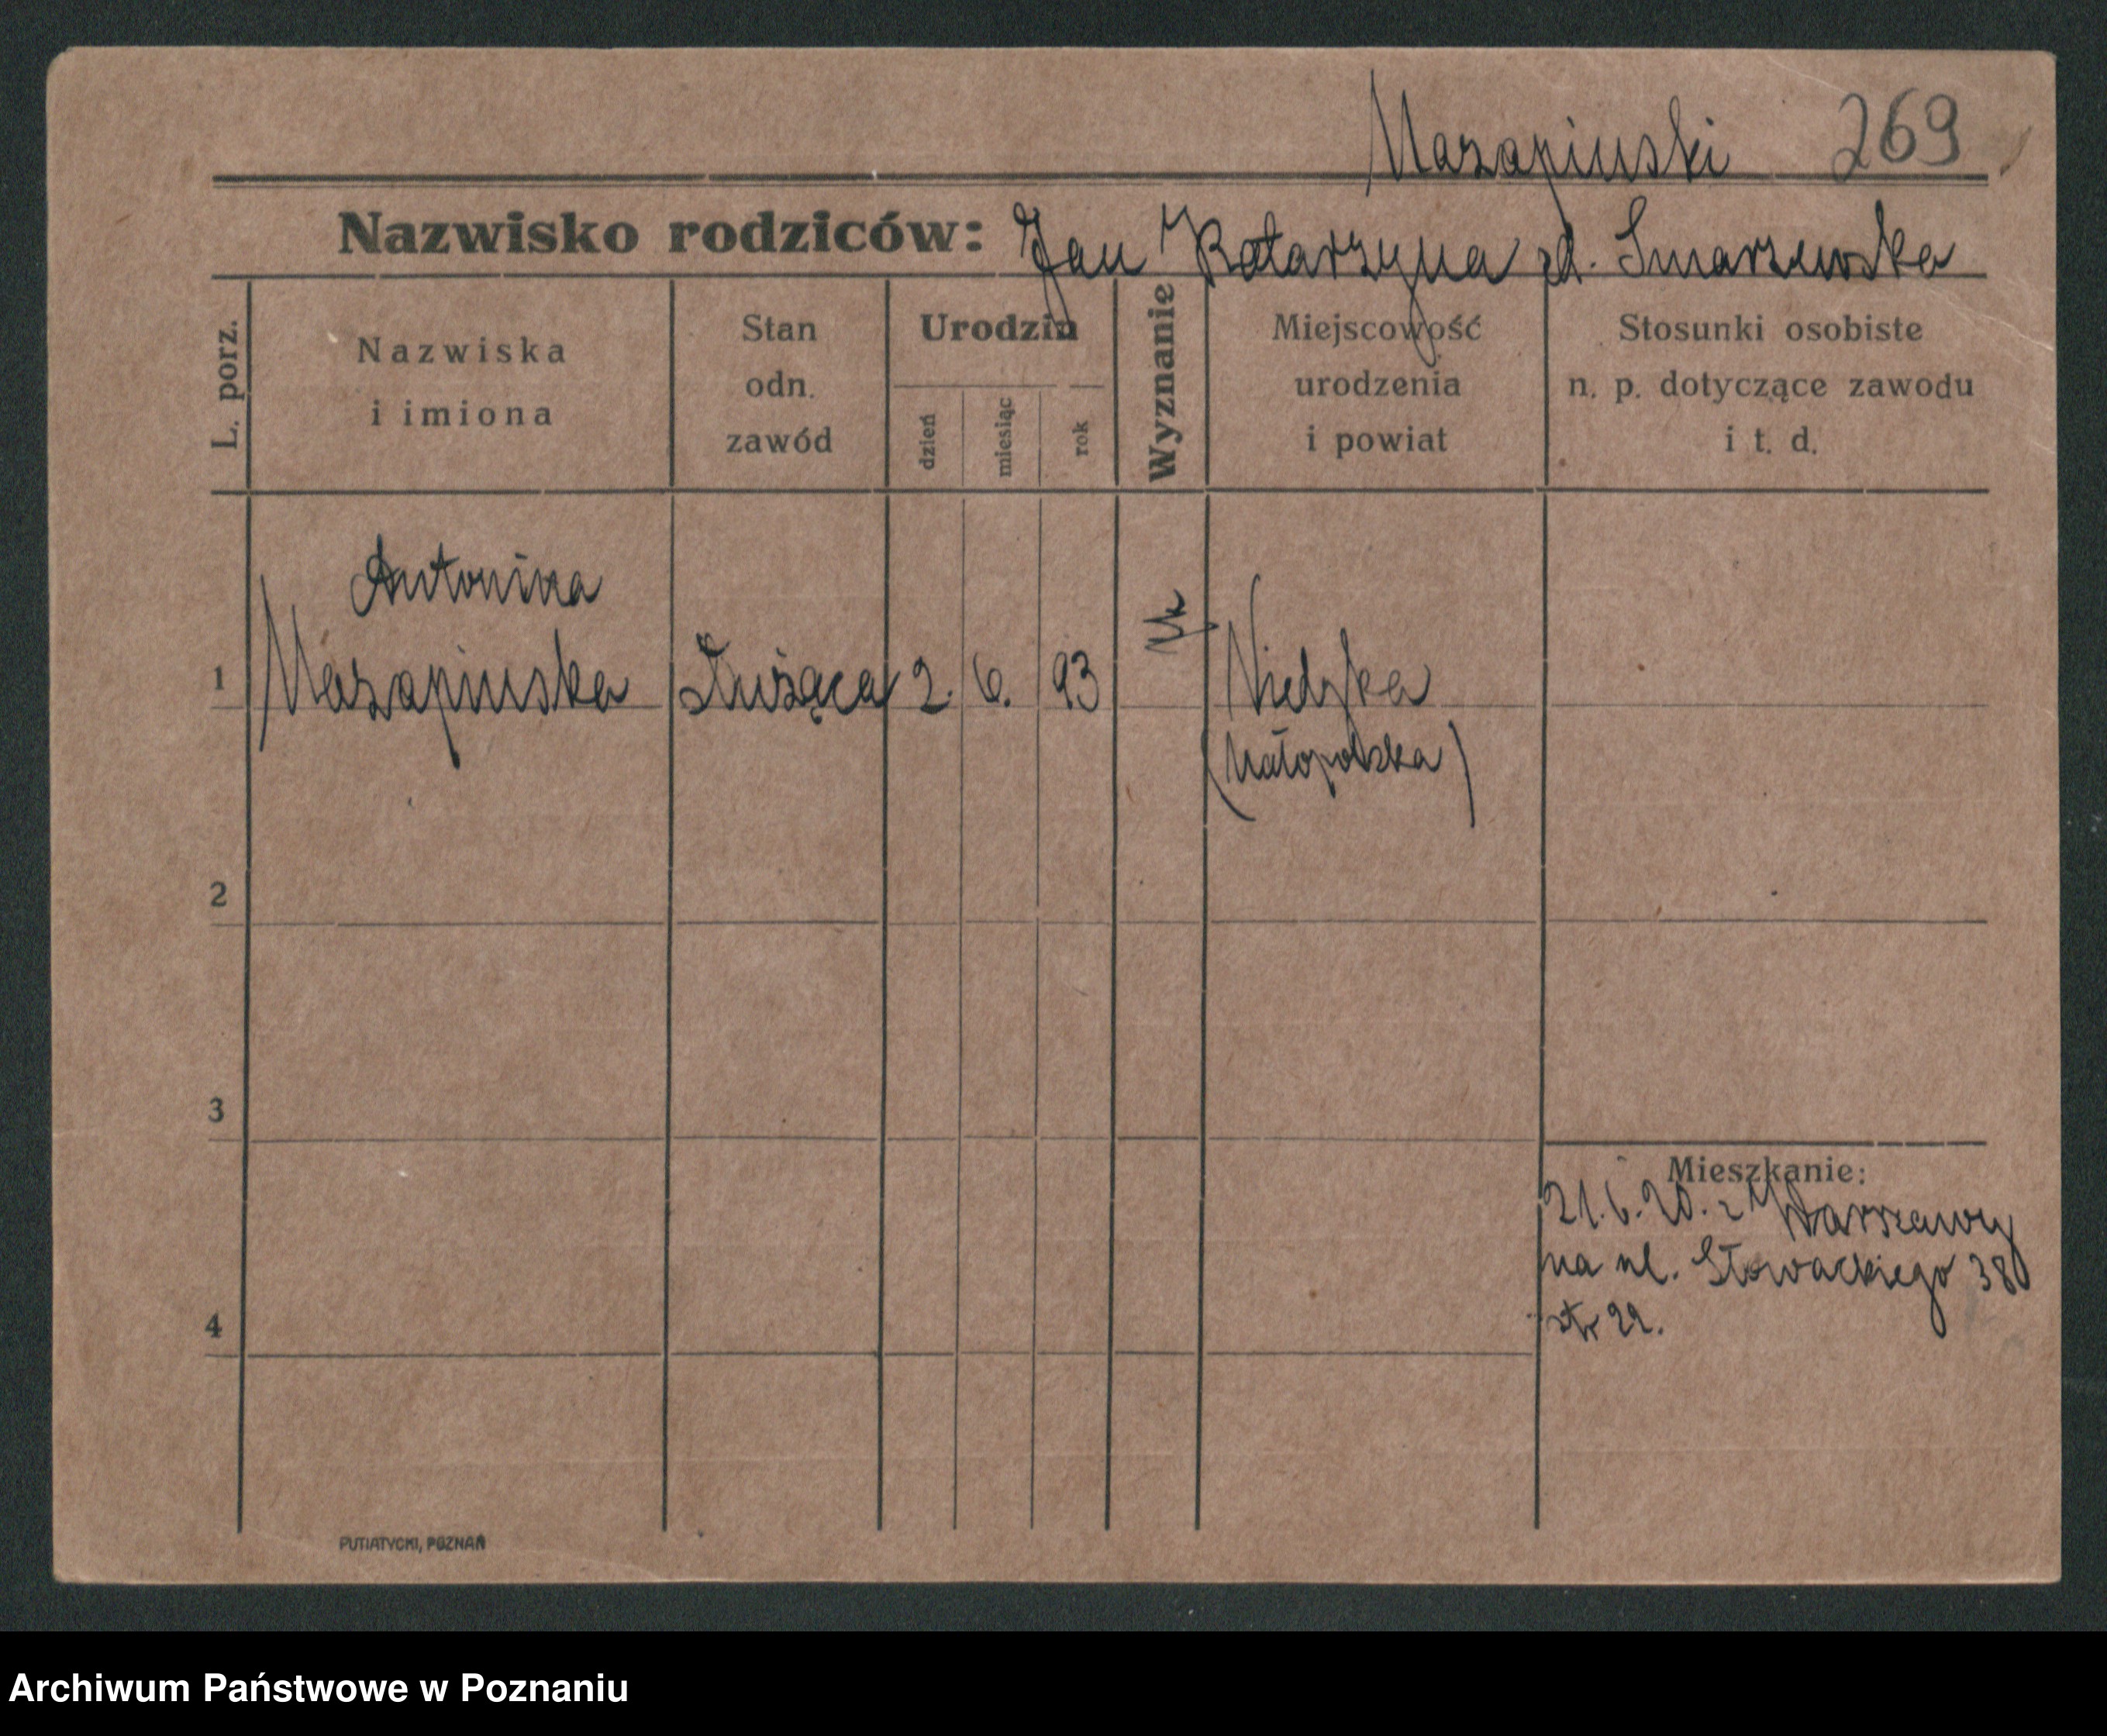 Mazapiuski 269
Nazwisko rodziców: Jan Katarzyna zd. Smarzewska
L. porz.
Nazwiska
i imiona
Stan
odn.
zawód
Urodzin
dzień
miesiąc
rok
Wyznanie
Miejscowość
urodzenia
i powiat
Stosunki osobiste
n. p. dotyczące zawodu
i t. d.
Antonina
1 Mazapiuska Służąca 2. 6. 93
(Małopolska)
2
3
4
Mieszkanie:
21.6.20. z Warszawy
na ul. Słowackiego 38
22.
PUTIATYCKI, POZNAŃ
Archiwum Państwowe w Poznaniu